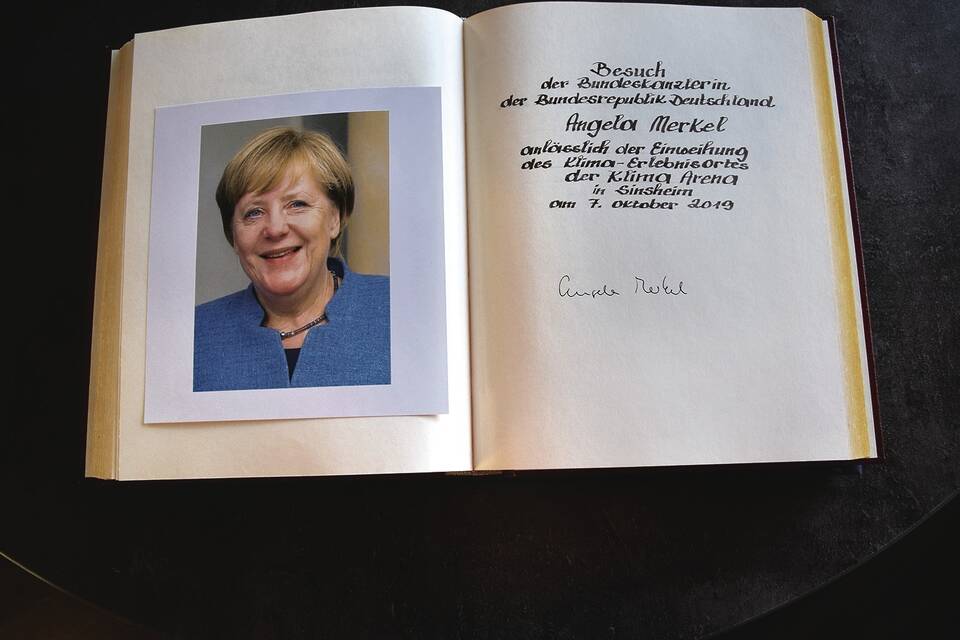 Besuch
der Bundeskanzlerin
der Bundesrepublik Deutschland
Angela Merkel
anlässlich der Einweihung
des Klima-Erlebnisortes
der Klima Arena
in Sinsheim
am 7. Oktober 2019
Angela Merkel